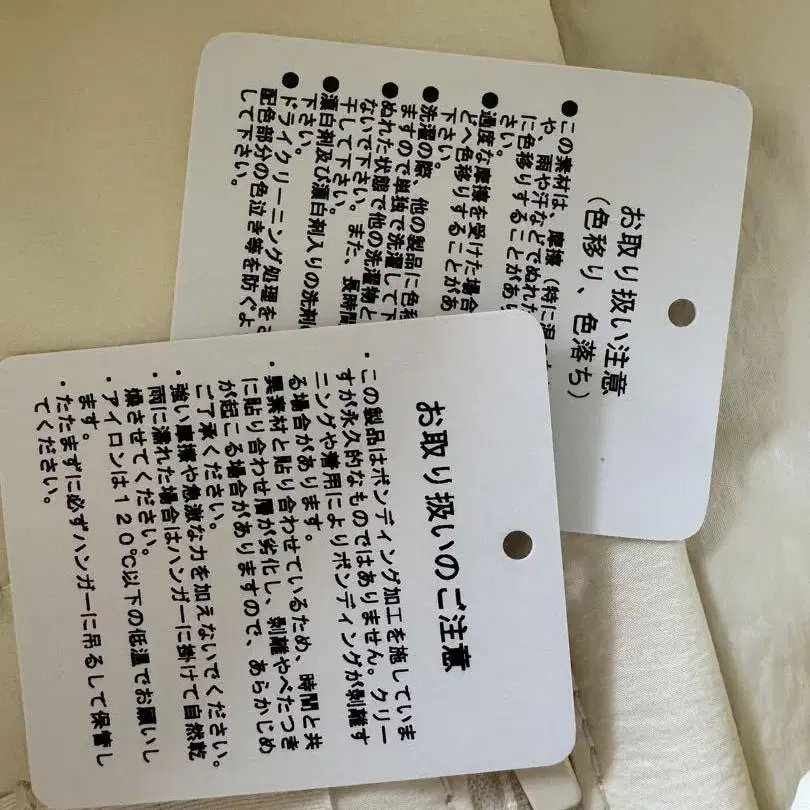 お取り扱い注意
(色移り、色落ち)
●この素材は、摩擦(特に湿
や、雨や汗などでぬれた
に色移りすることがあ
さい。
●過度な摩擦を受けた場合
どへ色移りすることがあ
下さい。
●洗濯の際、他の製品に色移
ますので単独で洗濯して下
●ぬれた状態で他の洗濯物と
ないで下さい。また、長時間
干して下さい。
●漂白剤及び漂白剤入りの洗剤
下さい。
●ドライクリーニング処理を
配色部分の色泣き等を防ぐよ
して下さい。
お取り扱いのご注意
・この製品はボンディング加工を施していま
すが永久的なものではありません。クリー
ニングや着用によりボンディングが剥離す
る場合があります。
・異素材と貼り合わせているため、時間と共
に貼り合わせ層が劣化し、剥離やべたつき
が起こる場合がありますので、あらかじめ
ご了承ください。
・強い摩擦や急激な力を加えないでください。
・雨に濡れた場合はハンガーに掛けて自然乾
燥させてください。
・アイロンは120℃以下の低温でお願いし
ます。
・たたまずに必ずハンガーに吊るして保管し
てください。